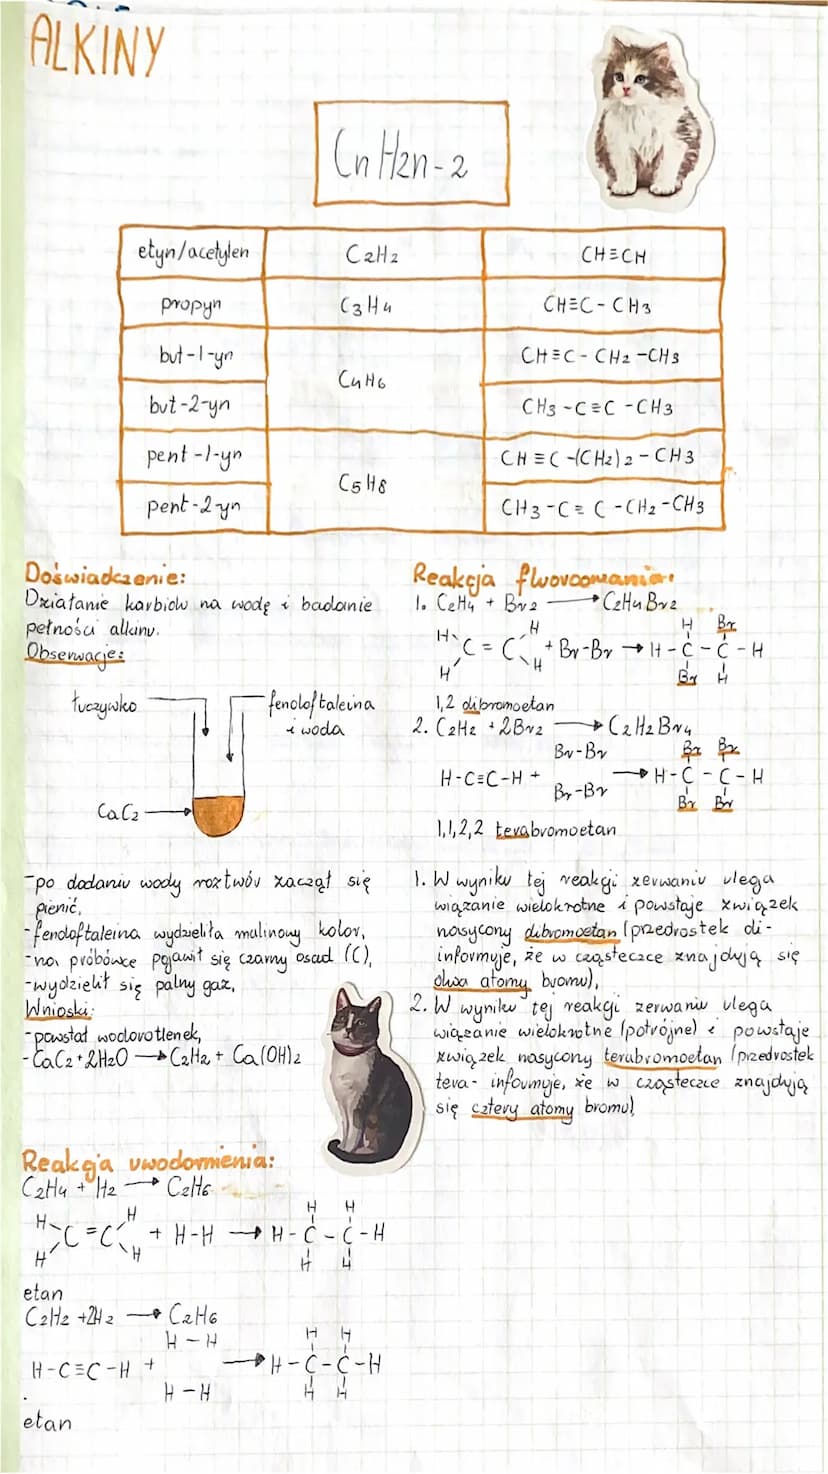 ALKINY
CnH2n-2
etyn/acetylen C2H2 CH≡CH
propyn C3H4 CH≡C-CH3
but-1-yn C4H6 CH≡C-CH2-CH3
but-2-yn CH3-C≡C-CH3
pent-1-yn C5H8 CH≡C-(CH2)2-CH3
pent-2-yn CH3-C≡C-CH2-CH3
Doświadczenie:
Działanie karbidu na wodę i badanie
pełności alkinu.
Obserwacje:
łuczywko
fenoloftaleina
i woda
CaC2
-po dodaniu wody roztwór zaczął się
pienić,
-fenoloftaleina wydzieliła malinowy kolor,
-na próbówce pojawił się czarny osad (C),
-wydzielił się palny gaz,
Wnioski:
-powstał wodorotlenek,
-CaC2+2H2O → C2H2 + Ca(OH)2
Reakcja uwodornienia:
C2H4 + H2 → C2H6
H H H H
C=C + H-H → H-C-C-H
H H H H
etan
C2H2 +2H2 → C2H6
H-H H H
H-C≡C-H + → H-C-C-H
H-H H H
etan
Reakcja fluorowania:
1. C2H4 + Br2 → C2H4Br2
H H H Br
C=C + Br-Br → H-C-C-H
H H Br H
1,2 dibromoetan
2. C2H2 +2Br2 → C2H2Br4
Br-Br Br Br
H-C≡C-H + → H-C-C-H
Br-Br Br Br
1,1,2,2 terabromoetan
1. W wyniku tej reakcji zerwaniu ulega
wiązanie wielokrotne i powstaje związek
nasycony dibromoetan (przedrostek di-
informuje, że w cząsteczce znajdują się
dwa atomy bromu),
2. W wyniku tej reakcji zerwaniu ulega
wiązanie wielokrotne (potrójne) i powstaje
związek nasycony terabromoetan (przedrostek
tera- informuje, że w cząsteczce znajdują
się cztery atomy bromu)